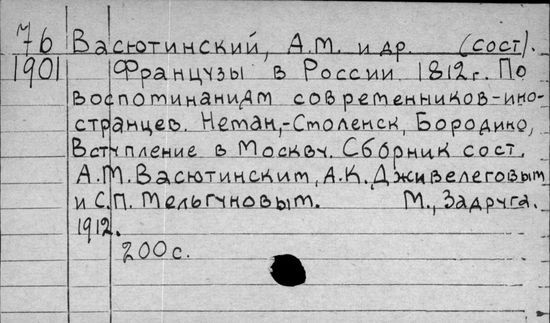 76 Васютинский, А.М. и др. (сост).
1901 Французы в России 1812г. По
воспоминаниям современников-ино-
странцев. Неман,-Смоленск, Бородино,
Вступление в Москву. Сборник сост.
А.М. Васютинским, А.К. Дживелеговым
и С.П. Мельгуновым. М., Задруга.
1912.
200 с.